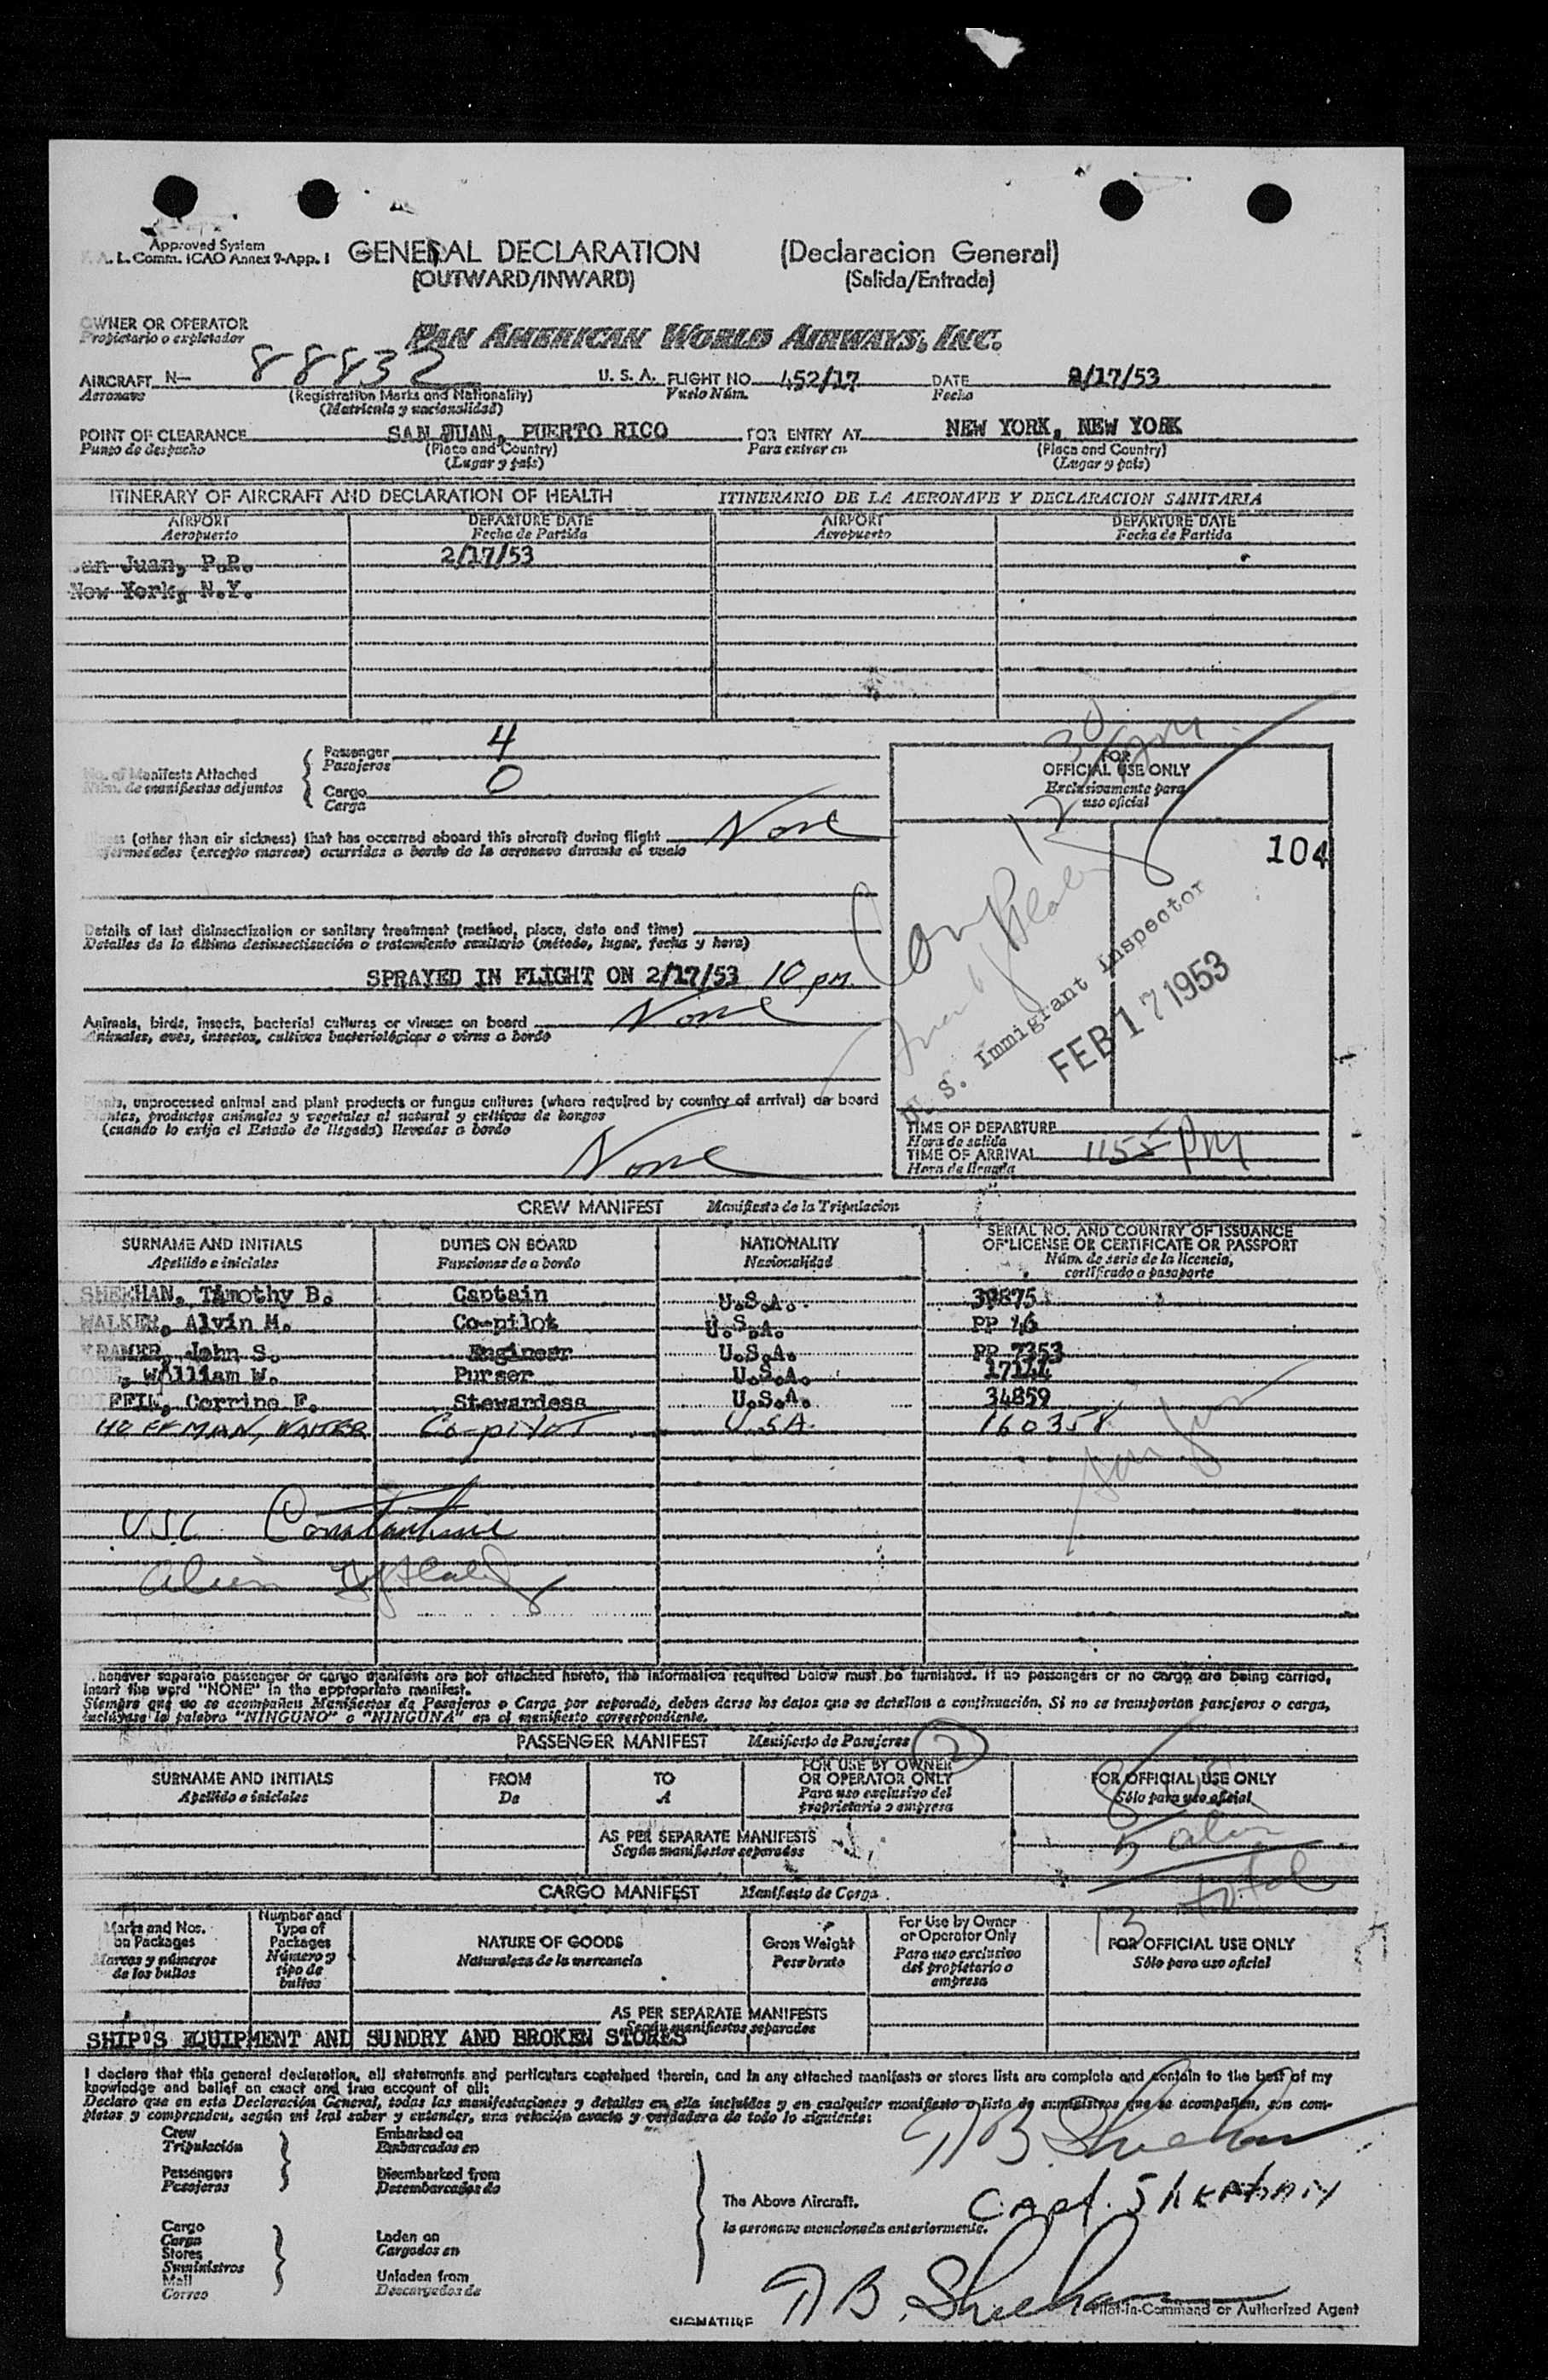 Approved System
L. Comm. ICAO Annex 9-App. 1
GENERAL DECLARATION (Declaracion General)
(OUTWARD/INWARD) (Salida/Entrada)
OWNER OR OPERATOR PAN AMERICAN WORLD AIRWAYS, INC.
Propietario o explotador
AIRCRAFT N- 88832 U. S. A. FLIGHT NO. 452/17 DATE 2/17/53
Aeronave (Registration Marks and Nationality) Vuelo Núm. Fecha
(Matricula y nacionalidad)
POINT OF CLEARANCE SAN JUAN, PUERTO RICO FOR ENTRY AT NEW YORK, NEW YORK
Punto de despacho (Place and Country) Para entrar en (Place and Country)
(Lugar y país) (Lugar y país)
ITINERARY OF AIRCRAFT AND DECLARATION OF HEALTH ITINERARIO DE LA AERONAVE Y DECLARACION SANITARIA
AIRPORT DEPARTURE DATE AIRPORT DEPARTURE DATE
Aeropuerto Fecha de Partida Aeropuerto Fecha de Partida
San Juan, P.R. 2/17/53
New York, N.Y.
Passenger 4
Pasajeros
No. of Manifests Attached
Núm. de manifiestas adjuntos
Cargo 0
Carga
(other than air sickness) that has occurred aboard this aircraft during flight None
(excepto mareos) ocurridas a bordo de la aeronave durante el vuelo
Details of last disinsectization or sanitary treatment (method, place, date and time)
Detalles de la última desinsectisación o tratamiento sanitario (método, lugar, fecha y hora)
SPRAYED IN FLIGHT ON 2/17/53 10 pm.
Animals, birds, insects, bacterial cultures or viruses on board None
Animales, aves, insectos, cultivos bacteriológicos o virus a bordo
Plants, unprocessed animal and plant products or fungus cultures (where required by country of arrival) on board
Plantas, productos animales y vegetales al natural y cultivos de hongos
(cuando lo exija el Estado de llegada) llevados a bordo
None
FOR
OFFICIAL USE ONLY
Exclusivamente para
uso oficial
104
U. S. Immigrant Inspector
FEB 17 1953
TIME OF DEPARTURE
Hora de salida
TIME OF ARRIVAL 1155 PM
Hora de llegada
CREW MANIFEST Manifiesto de la Tripulacion
SURNAME AND INITIALS DUTIES ON BOARD NATIONALITY SERIAL NO. AND COUNTRY OF ISSUANCE
OF LICENSE OR CERTIFICATE OR PASSPORT
Apellido e iniciales Funciones de a bordo Nacionalidad Núm. de serie de la licencia,
certificado o pasaporte
SHEEHAN, Timothy B. Captain U.S.A. 39875
WALKER, Alvin M. Co-pilot U.S.A. PP 46
KRAMER, John S. Engineer U.S.A. PP 7353
William W. Purser U.S.A. 17144
Corrine F. Stewardess U.S.A. 34859
HOFFMAN, WALTER Co-pilot U.S.A. 160358
USC
alien
Whenever separate passenger or cargo manifests are not attached hereto, the information required below must be furnished. If no passengers or no cargo are being carried,
insert the word "NONE" in the appropriate manifest.
Siempre que no se acompañen Manifiestos de Pasajeros o Carga por separado, deben darse los datos que se detallan a continuación. Si no se transportan pasajeros o carga,
inclúyase la palabra "NINGUNO" o "NINGUNA" en el manifiesto correspondiente.
PASSENGER MANIFEST Manifiesto de Pasajeros 2
SURNAME AND INITIALS FROM TO FOR USE BY OWNER
OR OPERATOR ONLY FOR OFFICIAL USE ONLY
Apellido e iniciales De A Para uso exclusivo del
propietario o empresa Sólo para uso oficial
8
5 alien
13 total
AS PER SEPARATE MANIFESTS
Según manifiestos separados
CARGO MANIFEST Manifiesto de Carga
Marks and Nos.
on Packages
Marcas y números
de los bultos
Number and
Type of
Packages
Número y
tipo de
bultos
NATURE OF GOODS
Naturaleza de la mercancia
Gross Weight
Peso bruto
For Use by Owner
or Operator Only
Para uso exclusivo
del propietario o
empresa
FOR OFFICIAL USE ONLY
Sólo para uso oficial
AS PER SEPARATE MANIFESTS
Según manifiestos separados
SHIP'S EQUIPMENT AND SUNDRY AND BROKEN STORES
I declare that this general declaration, all statements and particulars contained therein, and in any attached manifests or stores lists are complete and contain to the best of my
knowledge and belief an exact and true account of all:
Declaro que en esta Declaración General, todas las manifestaciones y detalles en ella incluidos y en cualquier manifiesto o lista de suministros que se acompañan, son com-
pletos y comprenden, según mi leal saber y entender, una relación exacta y verdadera de todo lo siguiente:
Crew
Tripulación
Passengers
Pasajeros
Embarked on
Embarcados en
Disembarked from
Desembarcados de
Cargo
Carga
Stores
Suministros
Mail
Correo
Laden on
Cargados en
Unladen from
Descargados de
The Above Aircraft.
la aeronave mencionada anteriormente.
T B. Sheehan
Capt. Sheehan
SIGNATURE T B. Sheehan
Pilot-in-Command or Authorized Agent